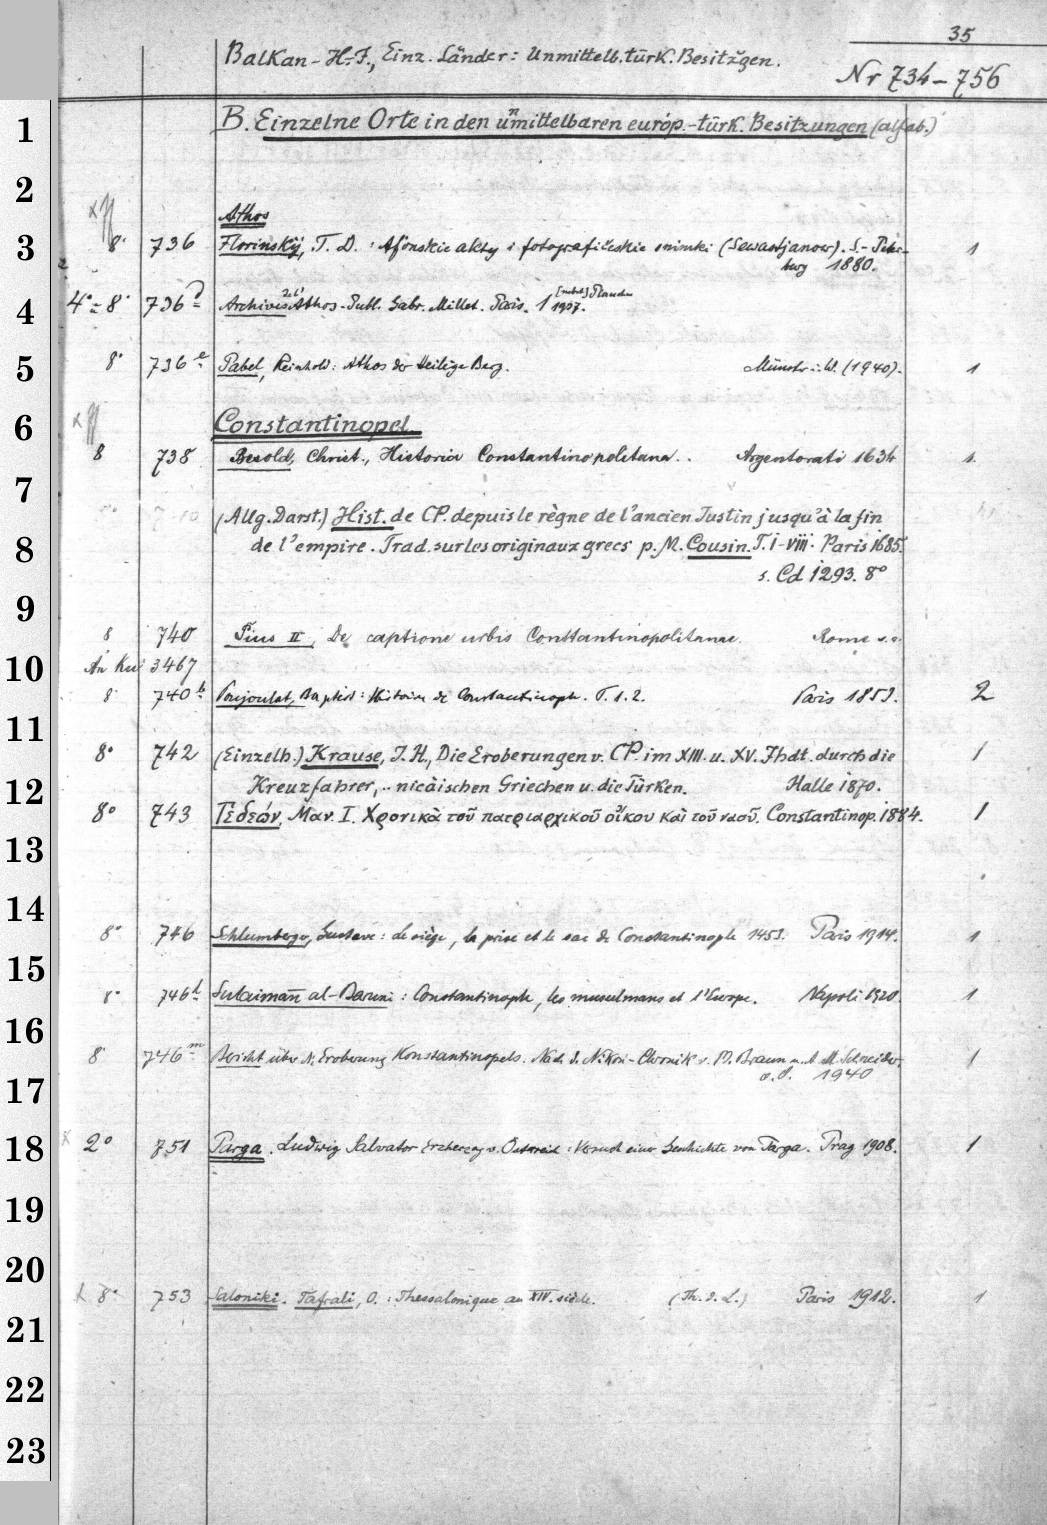 35
Balkan-H.-J., Einz. Länder: Unmittelb. türk. Besitzgen.
Nr 734-756
1 B. Einzelne Orte in den unmittelbaren europ.-türk. Besitzungen (alfab.)
2
Athos
3 8° 736 Florinskij, T. D.: Afonskie akty i fotografičeskie snimki (Sewastjanow). S.-Peter- 1
burg 1880.
4 4°-8° 736 Archives de l'Athos-Publ. Gabr. Millet. Paris. 1 1937.
5 8° 736 e Pabel, Reinhold: Athos der Heilige Berg. Münster i. W. (1940). 1
6 Constantinopel
8 738 Besold, Christ., Historia Constantinopolitana.. Argentorati 1634 1.
7
(Allg. Darst.) Hist. de CP. depuis le règne de l'ancien Justin jusqu'à la fin
8 de l'empire. Trad. sur les originaux grecs p. M. Cousin. T. I-VIII. Paris 1685.
s. Cd 1293. 8°
9
8 740 Pius II, De captione urbis Constantinopolitanae. Rome s.a.
10 3467
8° 740 b Poujoulat, Baptist: Histoire de Constantinople. T. 1.2. Paris 1853. 2
11
8° 742 (Einzelh.) Krause, J. H., Die Eroberungen v. CP. im XIII. u. XV. Jhdt. durch die 1
12 Kreuzfahrer,.. nicäischen Griechen u. die Türken. Halle 1870.
8° 743 Γεδεών, Μαν. Ι. Χρονικὰ τοῦ πατριαρχικοῦ οἴκου καὶ τοῦ ναοῦ. Constantinop. 1884. 1
13
14
8° 746 Schlumberger, Gustave: Le siège, la prise et le sac de Constantinople 1453. Paris 1914. 1
15
8° 746 l Sulaimān al-Baruni: Constantinople, les musulmans et l'Europe. Napoli 1920. 1
16
8° 746 m Bericht über d. Eroberung Konstantinopels. Nach d. Nikon-Chronik v. M. Braun u. A. M. Schneider. 1
o. O. 1940
17
18 2° 751 Parga. Ludwig Salvator Erzherzog v. Österreich: Versuch einer Geschichte von Parga. Prag 1908. 1
19
20
8° 753 Saloniki. Tafrali, O.: Thessalonique au XIV. siècle. (Th. d. L.) Paris 1912. 1
21
22
23